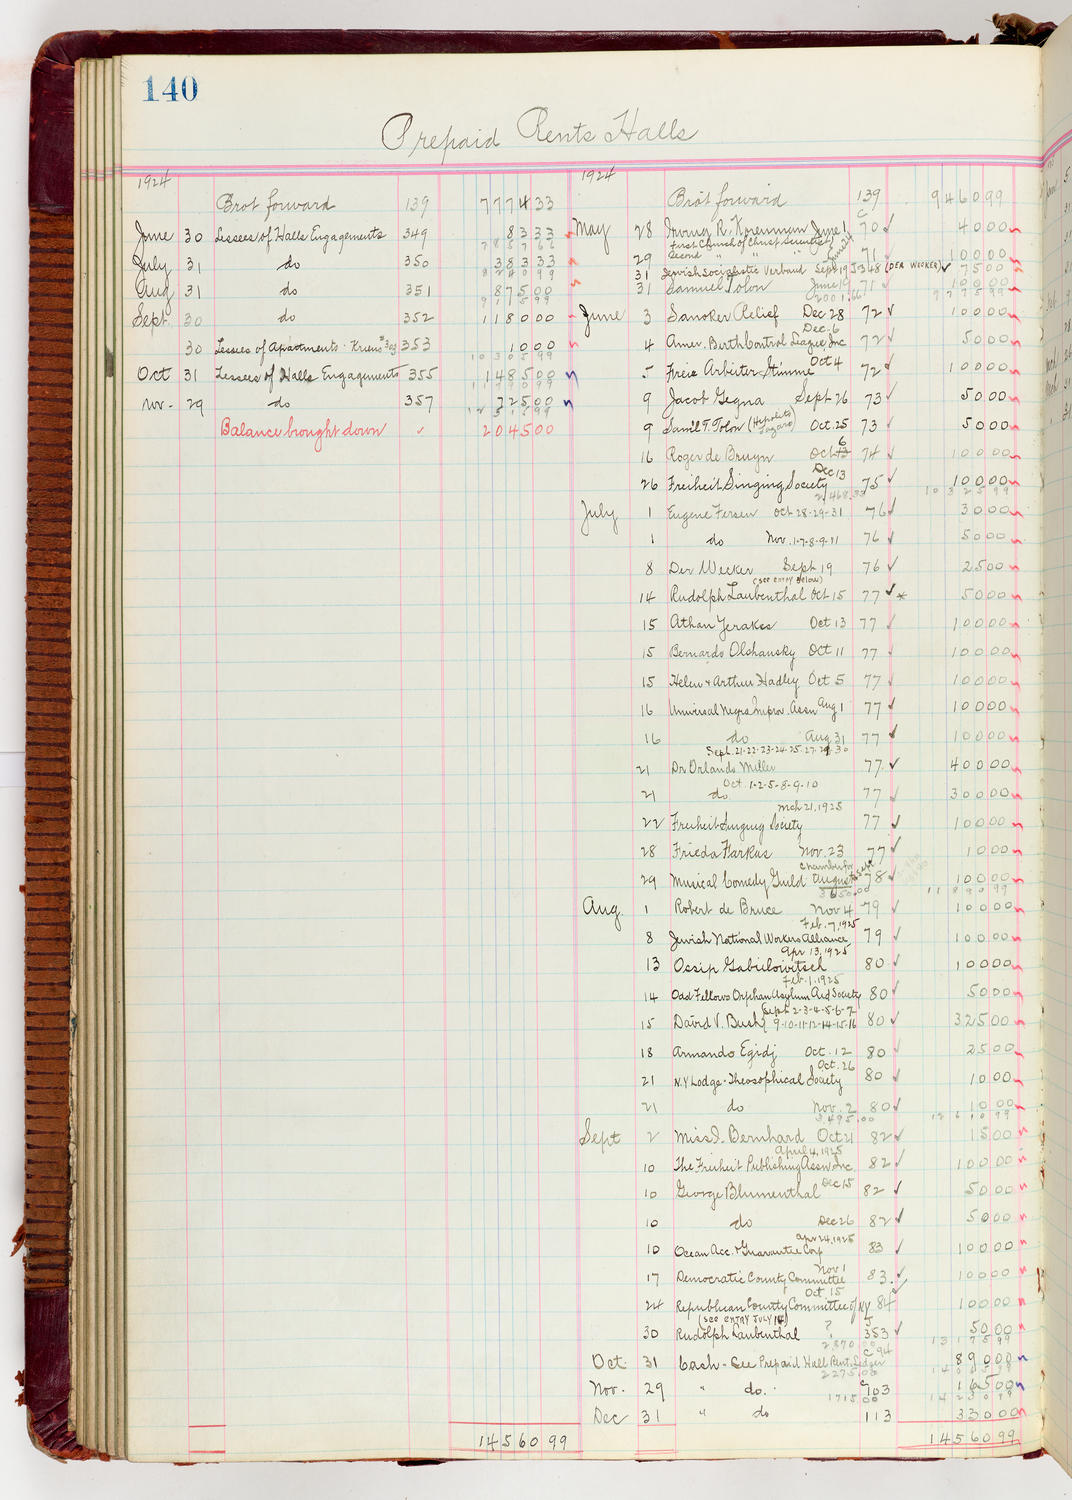 140
Prepaid Rents Halls
1924
Brot forward 139 7774 33
June 30 Lessees of Halls Engagements 349 83 33
7857 66
July 31 do 350 383 33
8240 99
Aug 31 do 351 875 00
9115 99
Sept. 30 do 352 1180 00
30 Lessees of Apartments - Kriens 353 10 00
10305 99
Oct 31 Lessees of Halls Engagements 355 1485 00
11790 99
Nov. 29 do 357 725 00
12515 99
Balance brought down ✓ 2045 00
14560 99
1924
Brot forward 139 9460 99
May 28 Irving R. Korenman June 1 C 70 ✓ 40 00
29 First Church of Christ Scientist 71 100 00
Second " " "
31 Jewish Socialistic Verband Sept 19 J 348 (DER WECKER) ✓ 75 00
31 Samuel Tolon June 19 71 ✓ 100 00
2001.66 9775 99
June 3 Sanoker Relief Dec 28 72 ✓ 100 00
Dec. 6
4 Amer. Birth Control League Inc 72 ✓ 50 00
5 Freie Arbeiter Stimme Oct 4 72 ✓ 100 00
9 Jacob Gegna Sept 26 73 ✓ 50 00
9 Saml T. Tolon (Hipolito Lazaro) Oct. 25 73 ✓ 50 00
6
16 Roger de Bruyn Oct 13 74 ✓ 100 00
Dec 13
26 Freiheit Singing Society 75 ✓ 100 00
2468.33 10325 99
July 1 Eugene Fersen Oct 28-29-31 76 ✓ 30 00
1 do Nov. 1-7-8-9-11 76 ✓ 50 00
8 Der Wecker Sept 19 76 ✓ 25 00
(see entry below)
14 Rudolph Laubenthal Oct 15 77 ✓ * 50 00
15 Athan Zerakes Oct 13 77 ✓ 100 00
15 Bernardo Olshansky Oct 11 77 ✓ 100 00
15 Helen & Arthur Hadley Oct 5 77 ✓ 100 00
16 Universal Negro Improv. Assn Aug 1 77 ✓ 100 00
16 do Aug 31 77 ✓ 100 00
Sept. 21-22-23-24-25-27-29 30
21 Dr Orlando Miller 77 ✓ 400 00
Oct. 1-2-5-8-9-10
21 do 77 ✓ 300 00
Mch 21, 1925
22 Freiheit Singing Society 77 ✓ 100 00
28 Frieda Farkas Nov. 23 77 ✓ 10 00
Chamber for
29 Musical Comedy Guild August & Sept 78 ✓ 100 00
3650.00 11890 99
Aug. 1 Robert de Bruce Nov 4 79 ✓ 100 00
Feb. 7, 1925
8 Jewish National Workers Alliance 79 ✓ 100 00
Apr 13, 1925
13 Ossip Gabrilowitsch 80 ✓ 100 00
Feb. 1, 1925
14 Odd Fellows Orphan Asylum Aid Society 80 ✓ 50 00
Sept 2-3-4-5-6-7
15 David V. Bush 9-10-11-12-14-15-16 80 ✓ 325 00
18 Armando Egidj Oct. 12 80 ✓ 25 00
Oct. 26
21 N.Y Lodge - Theosophical Society 80 ✓ 10 00
21 do Nov. 2 80 ✓ 10 00
3495.00 12610 99
Sept 2 Miss I. Bernhard Oct 21 82 ✓ 15 00
April 4, 1925
10 The Freiheit Publishing Assn Inc. 82 ✓ 100 00
10 George Blumenthal Dec 15 82 ✓ 50 00
10 do Dec 26 82 ✓ 50 00
Apr 24, 1925
10 Ocean Acc. & Guarantee Corp 83 ✓ 100 00
Nov 1
17 Democratic County Committee 83. ✓ 100 00
Oct 15
24 Republican County Committee of NY 84 ✓ 100 00
(SEE ENTRY JULY 14)
30 Rudolph Laubenthal ? J 353 ✓ 50 00
2870 00 13175 99
Oct. 31 Cash - See Prepaid Hall Rent Ledger C 94 890 00
2275.00 14065 99
Nov. 29 " do. C 103 165 00
1715 00 14230 99
Dec 31 " do 113 330 00
14560 99